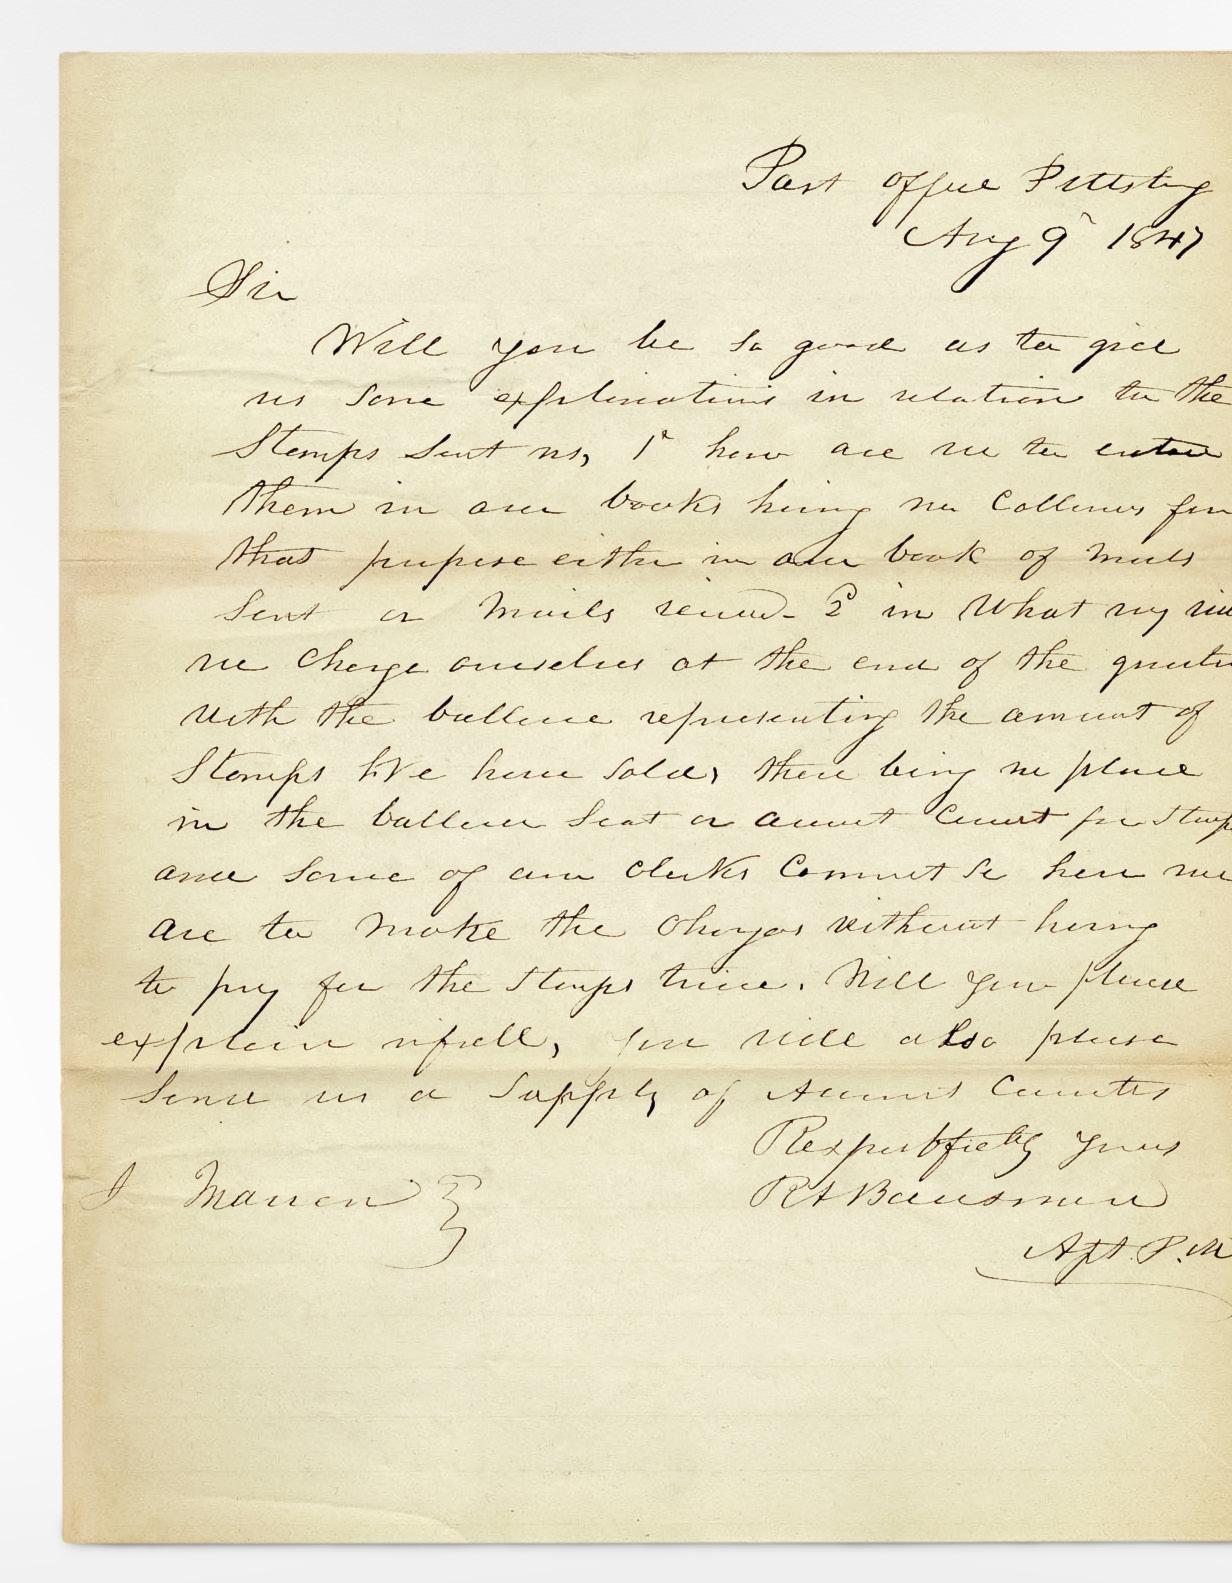 Post office Pittsburg
Aug 9 1847
Sir
Will you be so good as to give
us some explinations in relation to the
Stamps Sent us, 1st how are we to enter
them in our books having no Collumns for
that purpose either in our book of mails
Sent or Mails received. 2 in What way
we Charge ourselves at the end of the quarter
with the ballance representing the amount of
Stamps We have Sold, there being no place
in the ballance or account for Stamps
and some of our clerks Cannot Se how we
are to Make the Charges without having
to pay for the Stamps twice. Will you please
explain us full, you will also please
Send us a Supply of Account
Respectfully yours
R H Bausman
Ast. P. M
J Marron